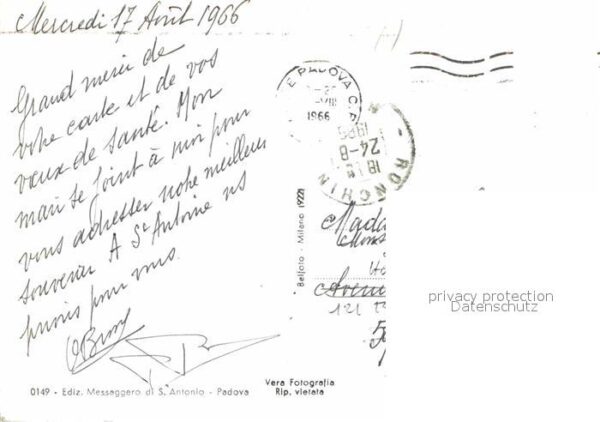 Mercredi 17 Août 1966
Grand merci de
votre carte et de vos
vœux de santé. Mon
mari se joint à moi pour
vous adresser notre meilleur
souvenir A St Antoine ns
prions pour vous.
PADOVA C.A
1966
RONCHIN
18 H
24-8
1966
Belfoto - Milano
Mada
Mons
Avenu
121
privacy protection
Datenschutz
0149 - Ediz. Messaggero di S. Antonio - Padova
Vera Fotografia
Rip. vietata